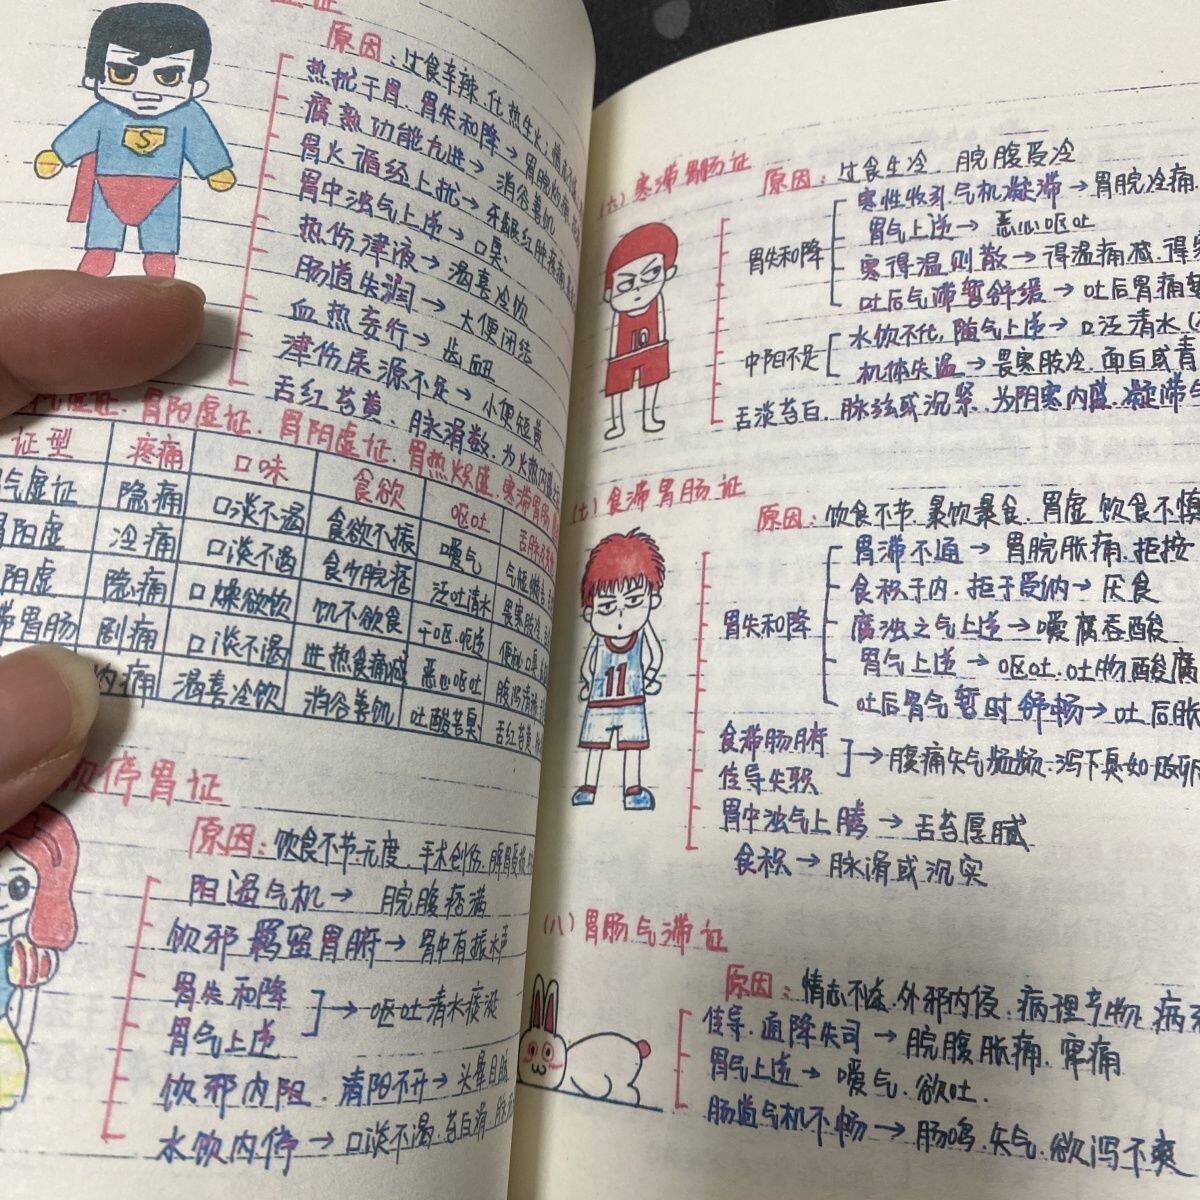 原因：过食辛辣.化热生火;
热扰于胃.胃失和降→胃脘灼痛
腐熟功能亢进→消谷善饥
胃火循经上扰→牙龈红肿疼痛
胃中浊气上逆→口臭
热伤津液→渴喜冷饮
肠道失润→大便闭结
血热妄行→齿衄
津伤尿源不足→小便短黄
舌红苔黄.脉滑数.为火热内盛
气虚证.胃阳虚证.胃阴虚证.胃热炽盛.寒滞胃肠
证型 疼痛 口味 食欲 呕吐 舌脉
气虚证 隐痛 口淡不渴 食欲不振 嗳气 气短懒言
胃阳虚 冷痛 口淡不渴 食少脘痞 泛吐清水 畏寒肢冷
阴虚 隐痛 口燥欲饮 饥不欲食 干呕.呃逆 便秘
滞胃肠 剧痛 口淡不渴 进热食痛减 恶心呕吐 腹泻清稀
灼痛 渴喜冷饮 消谷善饥 吐酸苦臭 舌红苔黄
饮停胃证
原因:饮食不节无度.手术创伤.
阻遏气机→脘腹痞满
饮邪羁留胃腑→胃中有振水声
胃失和降
胃气上逆
→呕吐清水痰涎
饮邪内阻.清阳不升→头晕目眩
水饮内停→口淡不渴.苔白滑.
(六)寒滞胃肠证
原因：过食生冷.脘腹受冷
胃失和降
寒性收引.气机凝滞→胃脘冷痛.
胃气上逆→恶心呕吐
寒得温则散→得温痛减.得寒
吐后气滞暂舒缓→吐后胃痛暂
中阳不足
水饮不化,随气上逆→口泛清水
机体失温→畏寒肢冷.面白或青
舌淡苔白.脉弦或沉紧.为阴寒内盛.凝滞气
(七)食滞胃肠证
原因:饮食不节.暴饮暴食.胃虚饮食不慎
胃失和降
胃滞不通→胃脘胀痛.拒按
食积于内.拒于受纳→厌食
腐浊之气上逆→嗳腐吞酸
胃气上逆→呕吐.吐物酸腐
吐后胃气暂时舒畅→吐后胀
食滞肠腑
传导失职
→腹痛矢气频频.泻下臭如败卵
胃中浊气上腾→舌苔厚腻
食积→脉滑或沉实
(八)胃肠气滞证
原因:情志不遂.外邪内侵.病理产物.
传导.通降失司→脘腹胀痛.窜痛
胃气上逆→嗳气.欲吐.
肠道气机不畅→肠鸣.矢气.欲泻不爽
S
10
11